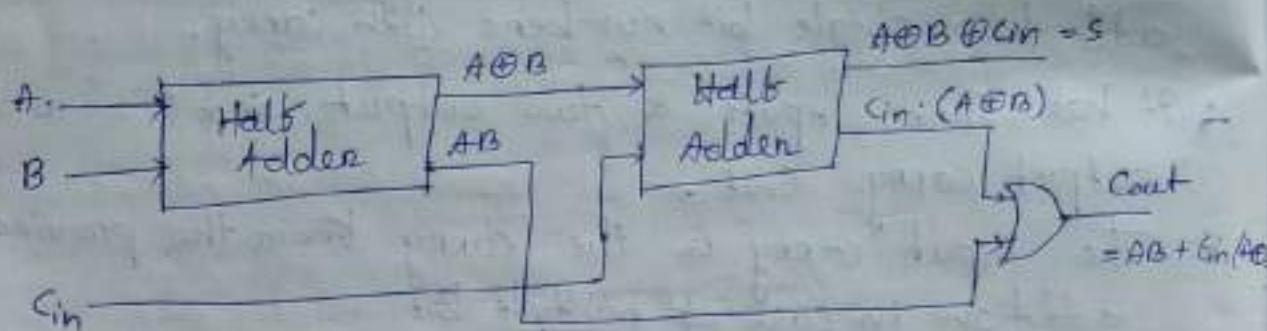 A
B
Half
Adder
A⊕B
AB
Half
Adder
A⊕B⊕Cin = S
Cin. (A⊕B)
Cout
= AB + Cin (A⊕
Cin